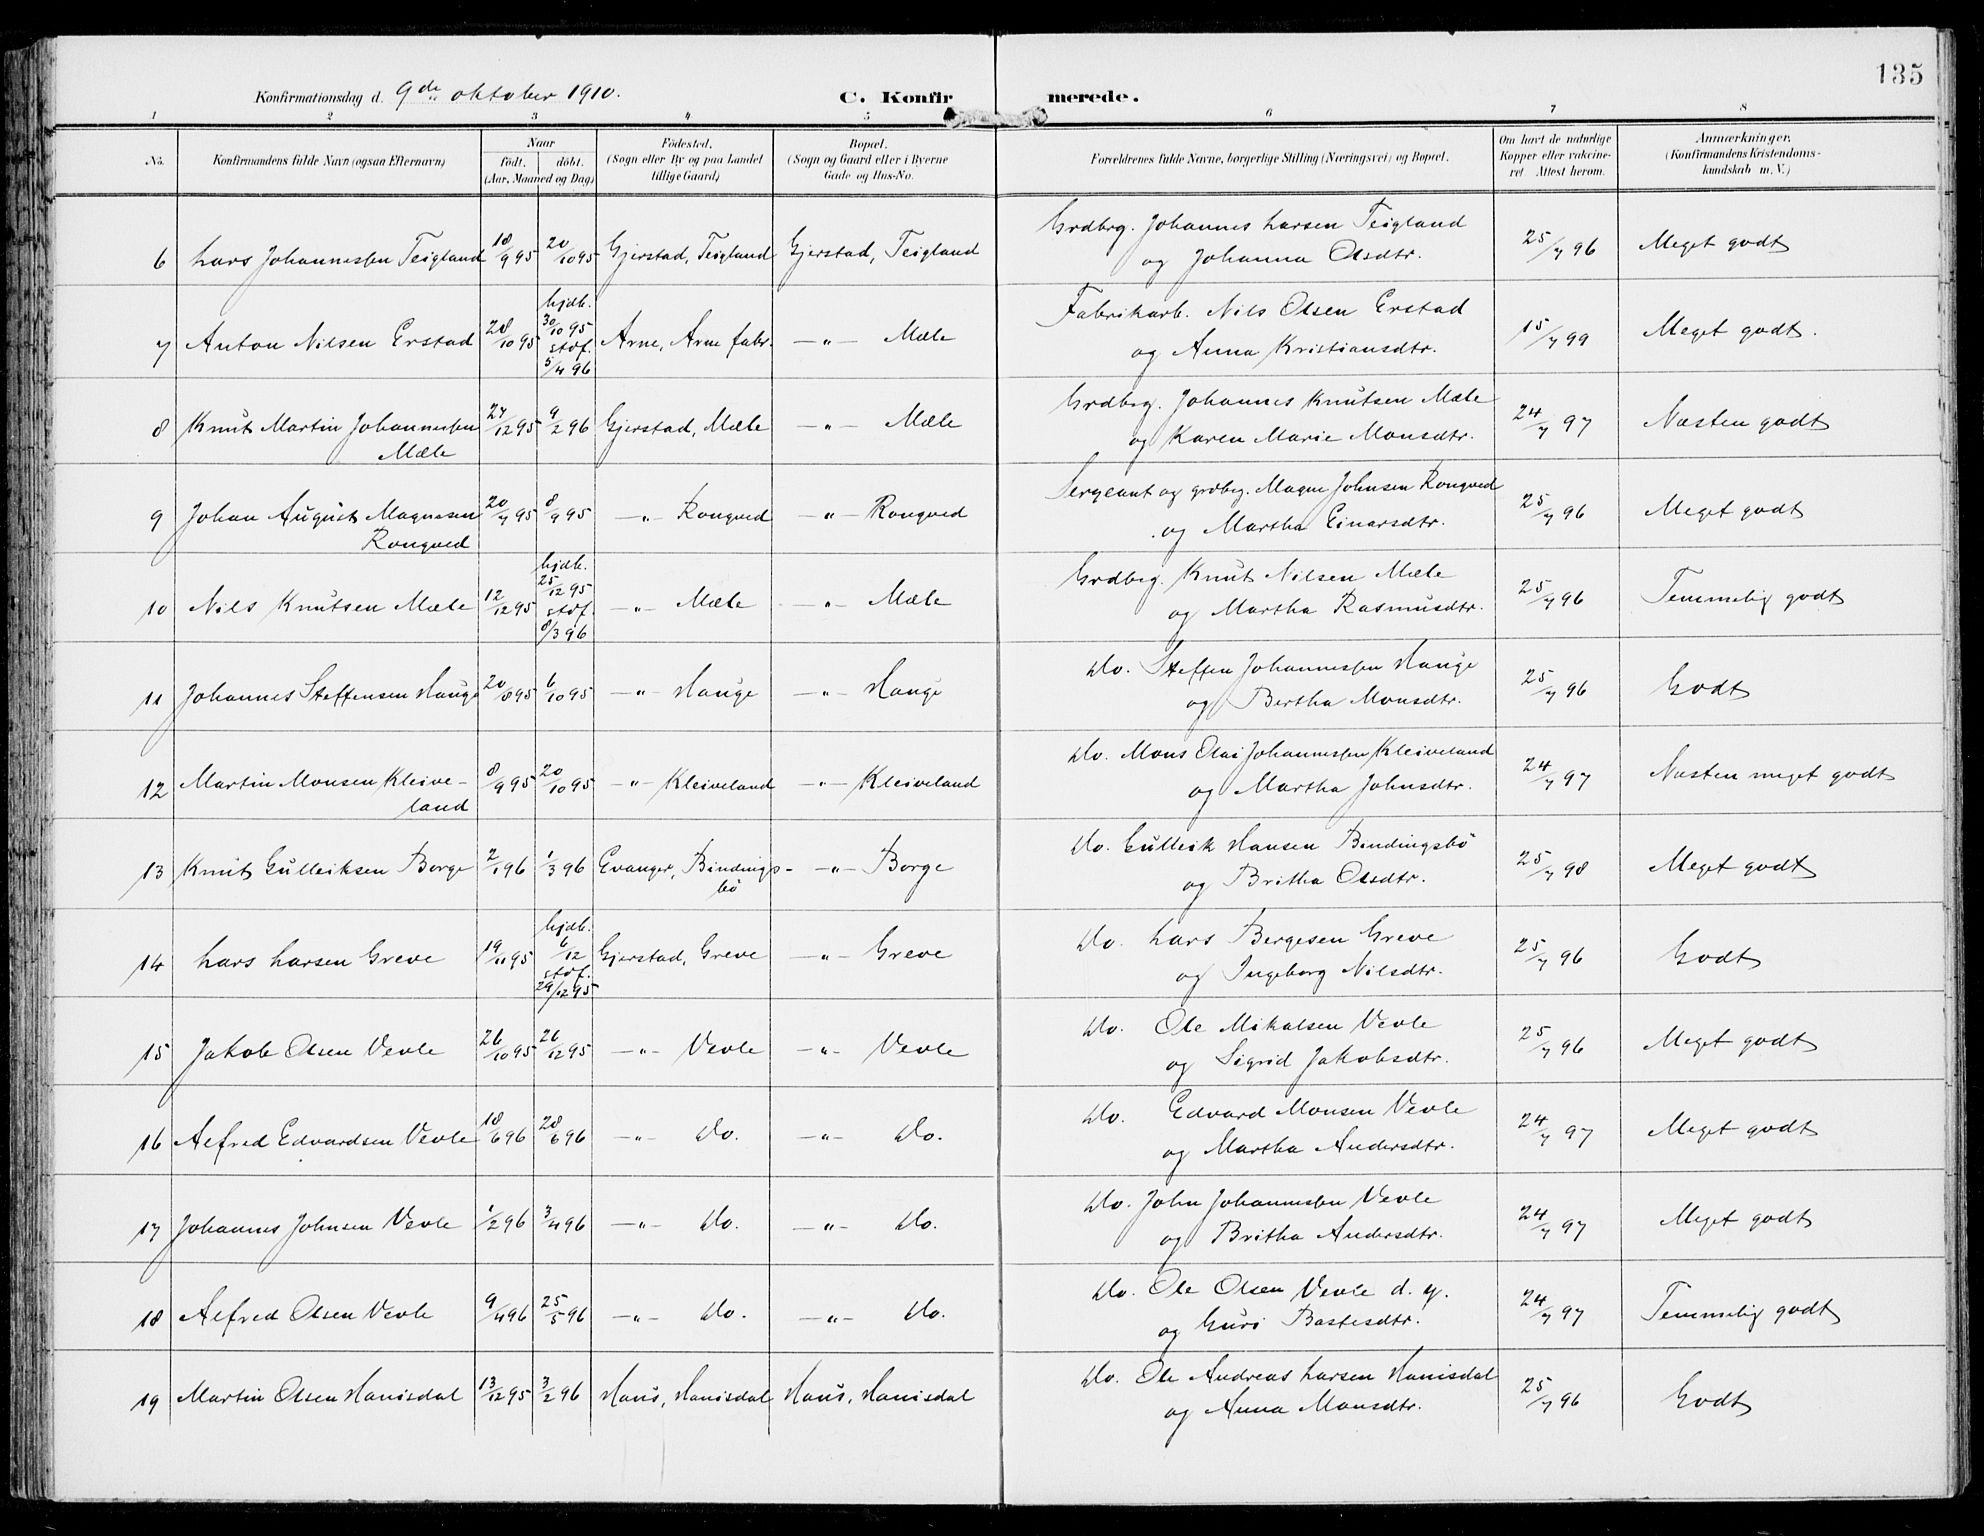 135
Konfirmationsdag d. 9de oktober 1910.
C. Konfirmerede.
1 2 3 4 5 6 7 8
No. Konfirmandens fulde Navn (ogsaa Efternavn) Naar födt. döbt. (Aar, Maaned og Dag) Födested. (Sogn eller By og paa Landet tillige Gaard) Bopæl. (Sogn og Gaard eller i Byerne Gade og Hus-No. Forældrenes fulde Navne, borgerlige Stilling (Næringsvei) og Bopæl. Om havt de naturlige Kopper eller vakcineret. Attest herom. Anmærkninger. (Konfirmandens Kristendomskundskab m. V.)
6 Lars Johannessen Teigland 18/9 95 20/10 95 Gjerstad, Teigland Gjerstad, Teigland Grdbrg. Johannes Larsen Teigland 25/7 96 Meget godt
og Johanna Olsdtr.
7 Anton Nilsen Erstad 28/10 95 hjdb. 30/10 95 stdf. 5/4 96 Arne, Arne fabr. —"— Mæle Fabrikarb. Nils Olsen Erstad 15/7 99 Meget godt.
og Anna Kristiansdtr.
8 Knut Martin Johannessen Mæle 27/12 95 9/2 96 Gjerstad, Mæle —"— Mæle Grdbrg. Johannes Knutsen Mæle 24/7 97 Næsten godt
og Karen Marie Monsdtr.
9 Johan August Magnesen Rongved 20/7 95 8/9 95 —"— Rongved —"— Rongved Sergeant og grdbrg. Magne Johnsen Rongved 25/7 96 Meget godt
og Martha Einarsdtr.
10 Nils Knutsen Mæle 12/12 95 hjdb. 25/12 95 stdf. 8/3 96 —"— Mæle —"— Mæle Grdbrg. Knut Nilsen Mæle 25/7 96 Temmelig godt
og Martha Rasmusdtr.
11 Johannes Steffensen Hauge 20/8 95 6/10 95 —"— Hauge —"— Hauge do. Steffen Johannessen Hauge 25/7 96 Godt
og Bertha Monsdtr.
12 Martin Monsen Kleiveland 8/9 95 20/10 95 —"— Kleiveland —"— Kleiveland do. Mons Olai Johannessen Kleiveland 24/7 97 Næsten meget godt
og Martha Johnsdtr.
13 Knut Gulleiksen Borge 2/1 96 1/3 96 Evanger, Bindingsbö —"— Borge do. Gulleik Hansen Bindingsbö 25/7 98 Meget godt
og Britha Olsdtr.
14 Lars Larsen Greve 19/11 95 hjdb. 6/12 stdf. 29/12 95 Gjerstad, Greve —"— Greve do. Lars Bergesen Greve 25/7 96 Godt
og Ingeborg Nilsdtr.
15 Jakob Olsen Vevle 26/10 95 26/12 95 —"— Vevle —"— Vevle do. Ole Mikalsen Vevle 25/7 96 Meget godt
og Sigrid Jakobsdtr.
16 Alfred Edvardsen Vevle 18/6 96 28/6 96 —"— do. —"— do. do. Edvard Monsen Vevle 24/7 97 Meget godt
og Martha Andersdtr.
17 Johannes Johnsen Vevle 1/2 96 3/4 96 —"— do. —"— do. do. John Johannessen Vevle 24/7 97 Meget godt
og Britha Andersdtr.
18 Alfred Olsen Vevle 9/4 96 25/5 96 —"— do. —"— do. do. Ole Olsen Vevle d. y. 24/7 97 Temmelig godt
og Guri Bastesdtr.
19 Martin Olsen Hanisdal 13/12 95 3/2 96 Haus, Hanisdal Haus, Hanisdal do. Ole Andreas Larsen Hanisdal 25/7 96 Godt
og Anna Monsdtr.